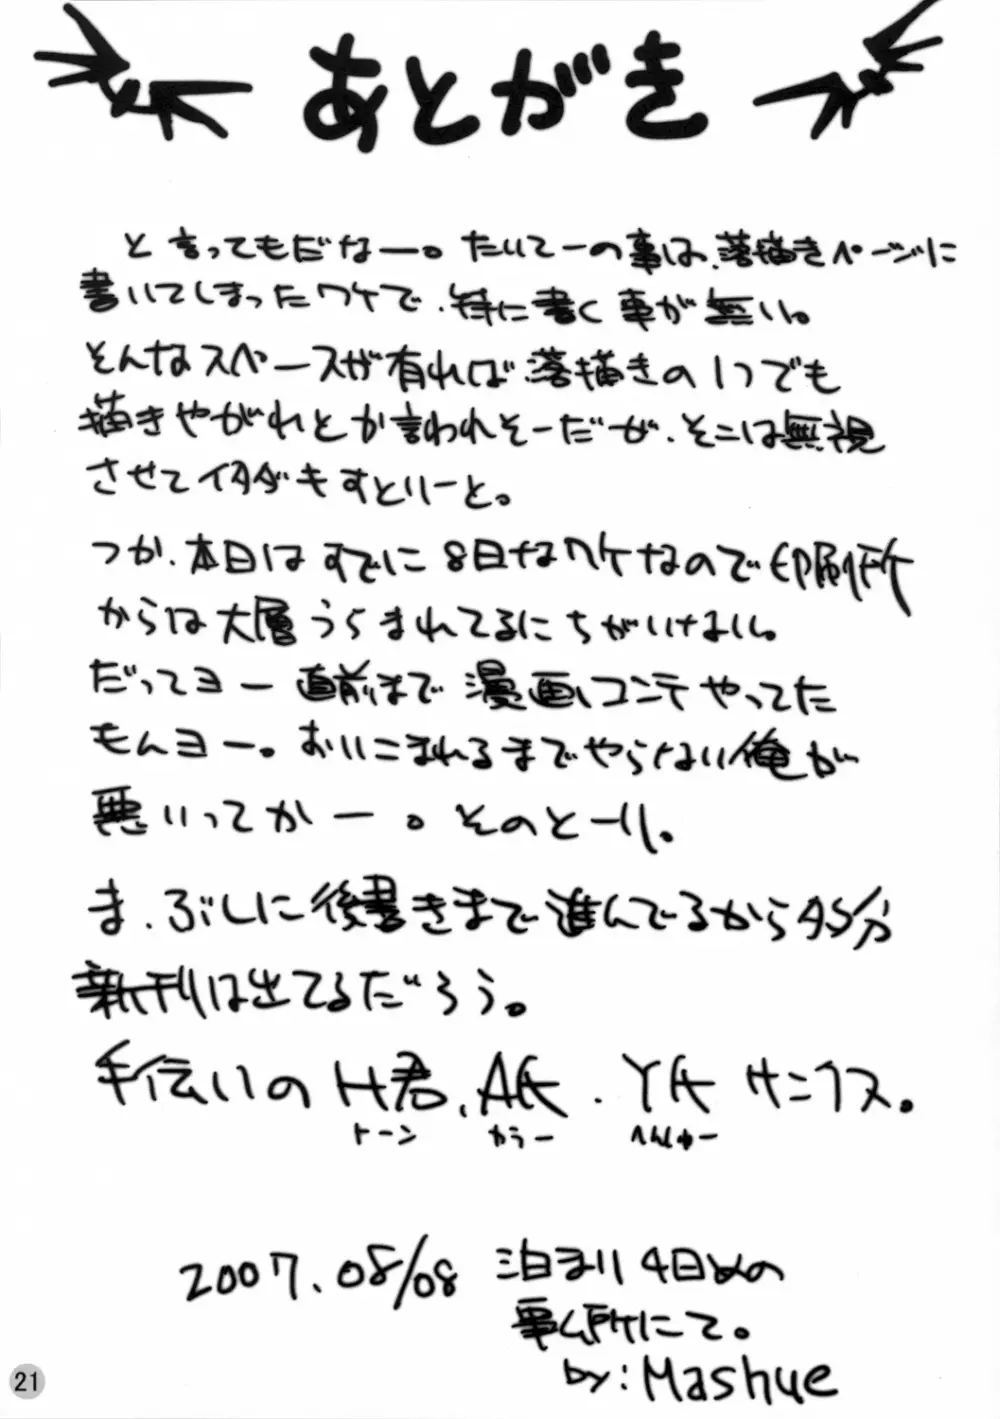 あとがき
と言ってもだなー。たいてーの事は、落描きページに
書いてしまったワケで、特に書く事が無い。
そんなスペースが有れば落描きの1つでも
描きやがれとか言われそーだが、そこは無視
させてイタダキすとりーと。
つか、本日はすでに8日なワケなので印刷所
からは大層うらまれてるにちがいない。
だってヨー直前まで漫画コンテやってた
もんヨー。おいこまれるまでやらない俺が
悪いってかー。そのとーり。
ま、ぶじに後書きまで進んでるから多分
新刊は出てるだろう。
手伝いのH君、A氏、Y氏サンクス。
トーン カラー へんしゅー
2007.08/08 泊まり4日めの
事ム所にて。
by:Mashue
21